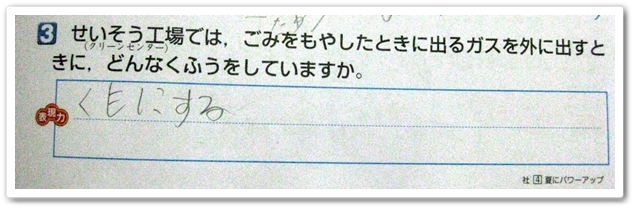 3 せいそう工場では，ごみをもやしたときに出るガスを外に出すと
(クリーンセンター)
きに，どんなくふうをしていますか。
表現力
くもにする
社 4 夏にパワーアップ